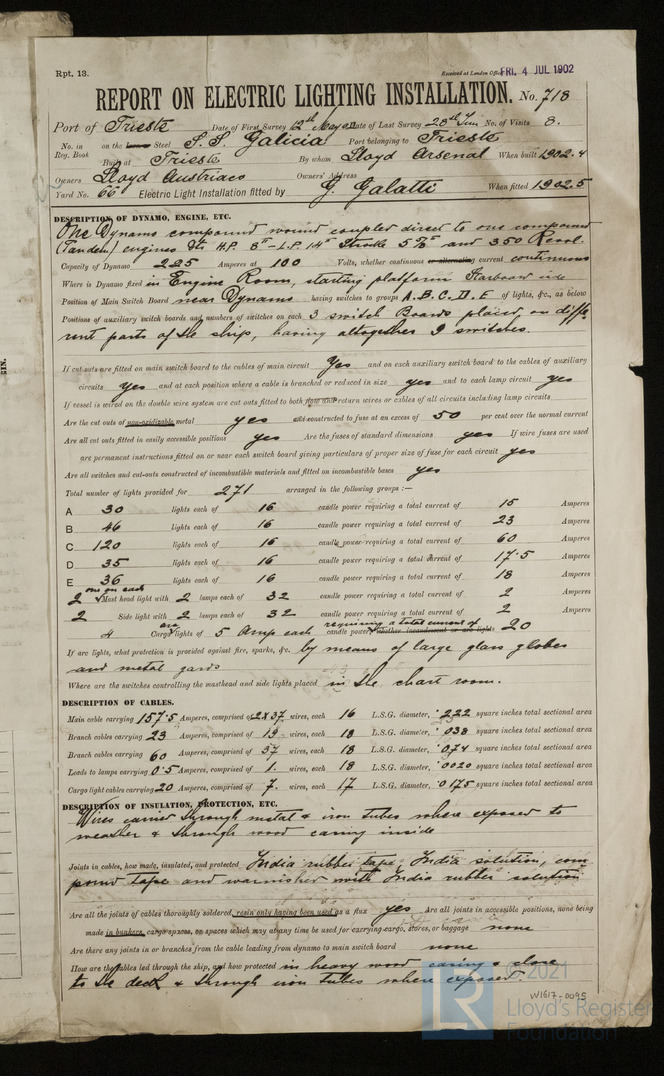 Rpt. 13.
Received at London Office FRI. 4 JUL 1902
REPORT ON ELECTRIC LIGHTING INSTALLATION. No. 718
Port of Trieste Date of First Survey 12th May 02 Date of Last Survey 28th Jun No. of Visits 8.
No. in Reg. Book on the Iron Steel S.S. Galicia Port belonging to Trieste
Built at Trieste By whom Lloyd Arsenal When built 1902.4
Owners Lloyd Austriaco Owners' Address
Yard No. 66 Electric Light Installation fitted by G. Galatti When fitted 1902.5
DESCRIPTION OF DYNAMO, ENGINE, ETC.
One Dynamo compound wound coupled direct to one compound
(Tandem) engines H.P. 8" - L.P. 14" Stroke 5 and 350 Revol.
Capacity of Dynamo 225 Amperes at 100 Volts, whether continuous or alternating current continuous
Where is Dynamo fixed in Engine Room, starting platform Starboard side
Position of Main Switch Board near Dynamo having switches to groups A. B. C. D. E of lights, &c., as below
Positions of auxiliary switch boards and numbers of switches on each 3 switch Boards placed on diffe
rent parts of the ships, having altogether 9 switches.
If cut outs are fitted on main switch board to the cables of main circuit Yes and on each auxiliary switch board to the cables of auxiliary
circuits yes and at each position where a cable is branched or reduced in size yes and to each lamp circuit yes
If vessel is wired on the double wire system are cut outs fitted to both flow and return wires or cables of all circuits including lamp circuits
Are the cut outs of non-oxidizable metal yes and constructed to fuse at an excess of 50 per cent over the normal current
Are all cut outs fitted in easily accessible positions yes Are the fuses of standard dimensions yes If wire fuses are used
are permanent instructions fitted on or near each switch board giving particulars of proper size of fuse for each circuit yes
Are all switches and cut-outs constructed of incombustible materials and fitted on incombustible bases yes
Total number of lights provided for 271 arranged in the following groups :—
A 30 lights each of 16 candle power requiring a total current of 15 Amperes
B 46 lights each of 16 candle power requiring a total current of 23 Amperes
C 120 lights each of 16 candle power requiring a total current of 60 Amperes
D 35 lights each of 16 candle power requiring a total current of 17.5 Amperes
E 36 lights each of 16 candle power requiring a total current of 18 Amperes
one on each
2 Mast head light with 2 lamps each of 32 candle power requiring a total current of 2 Amperes
2 Side light with 2 lamps each of 32 candle power requiring a total current of 2 Amperes
arc requiring a total current of
4 Cargo lights of 5 Amp each candle power, whether incandescent or arc lights 20
If arc lights, what protection is provided against fire, sparks, &c. by means of large glass globes
and metal gards
Where are the switches controlling the masthead and side lights placed in the chart room.
DESCRIPTION OF CABLES.
Main cable carrying 157.5 Amperes, comprised of 2x37 wires, each 16 L.S.G. diameter, .222 square inches total sectional area
Branch cables carrying 23 Amperes, comprised of 19 wires, each 18 L.S.G. diameter, .038 square inches total sectional area
Branch cables carrying 60 Amperes, comprised of 37 wires, each 18 L.S.G. diameter, .074 square inches total sectional area
Leads to lamps carrying 0.5 Amperes, comprised of 1. wires, each 18 L.S.G. diameter, .0020 square inches total sectional area
Cargo light cables carrying 20 Amperes, comprised of 7. wires, each 17 L.S.G. diameter, .0175 square inches total sectional area
DESCRIPTION OF INSULATION, PROTECTION, ETC.
Wires carried through metal & iron tubes where exposed to
weather & through wood casing inside
Joints in cables, how made, insulated, and protected India rubber tape India solution, com
pound tape and warnisher with India rubber solution
Are all the joints of cables thoroughly soldered, resin only having been used as a flux yes Are all joints in accessible positions, none being
made in bunkers, cargo spaces, or spaces which may at any time be used for carrying cargo, stores, or baggage none
Are there any joints in or branches from the cable leading from dynamo to main switch board none
How are the cables led through the ship, and how protected in heavy wood casing close
to the deck & through iron tubes where exposed.
© 2021
LR
Lloyd's Register
Foundation
W1617-0095